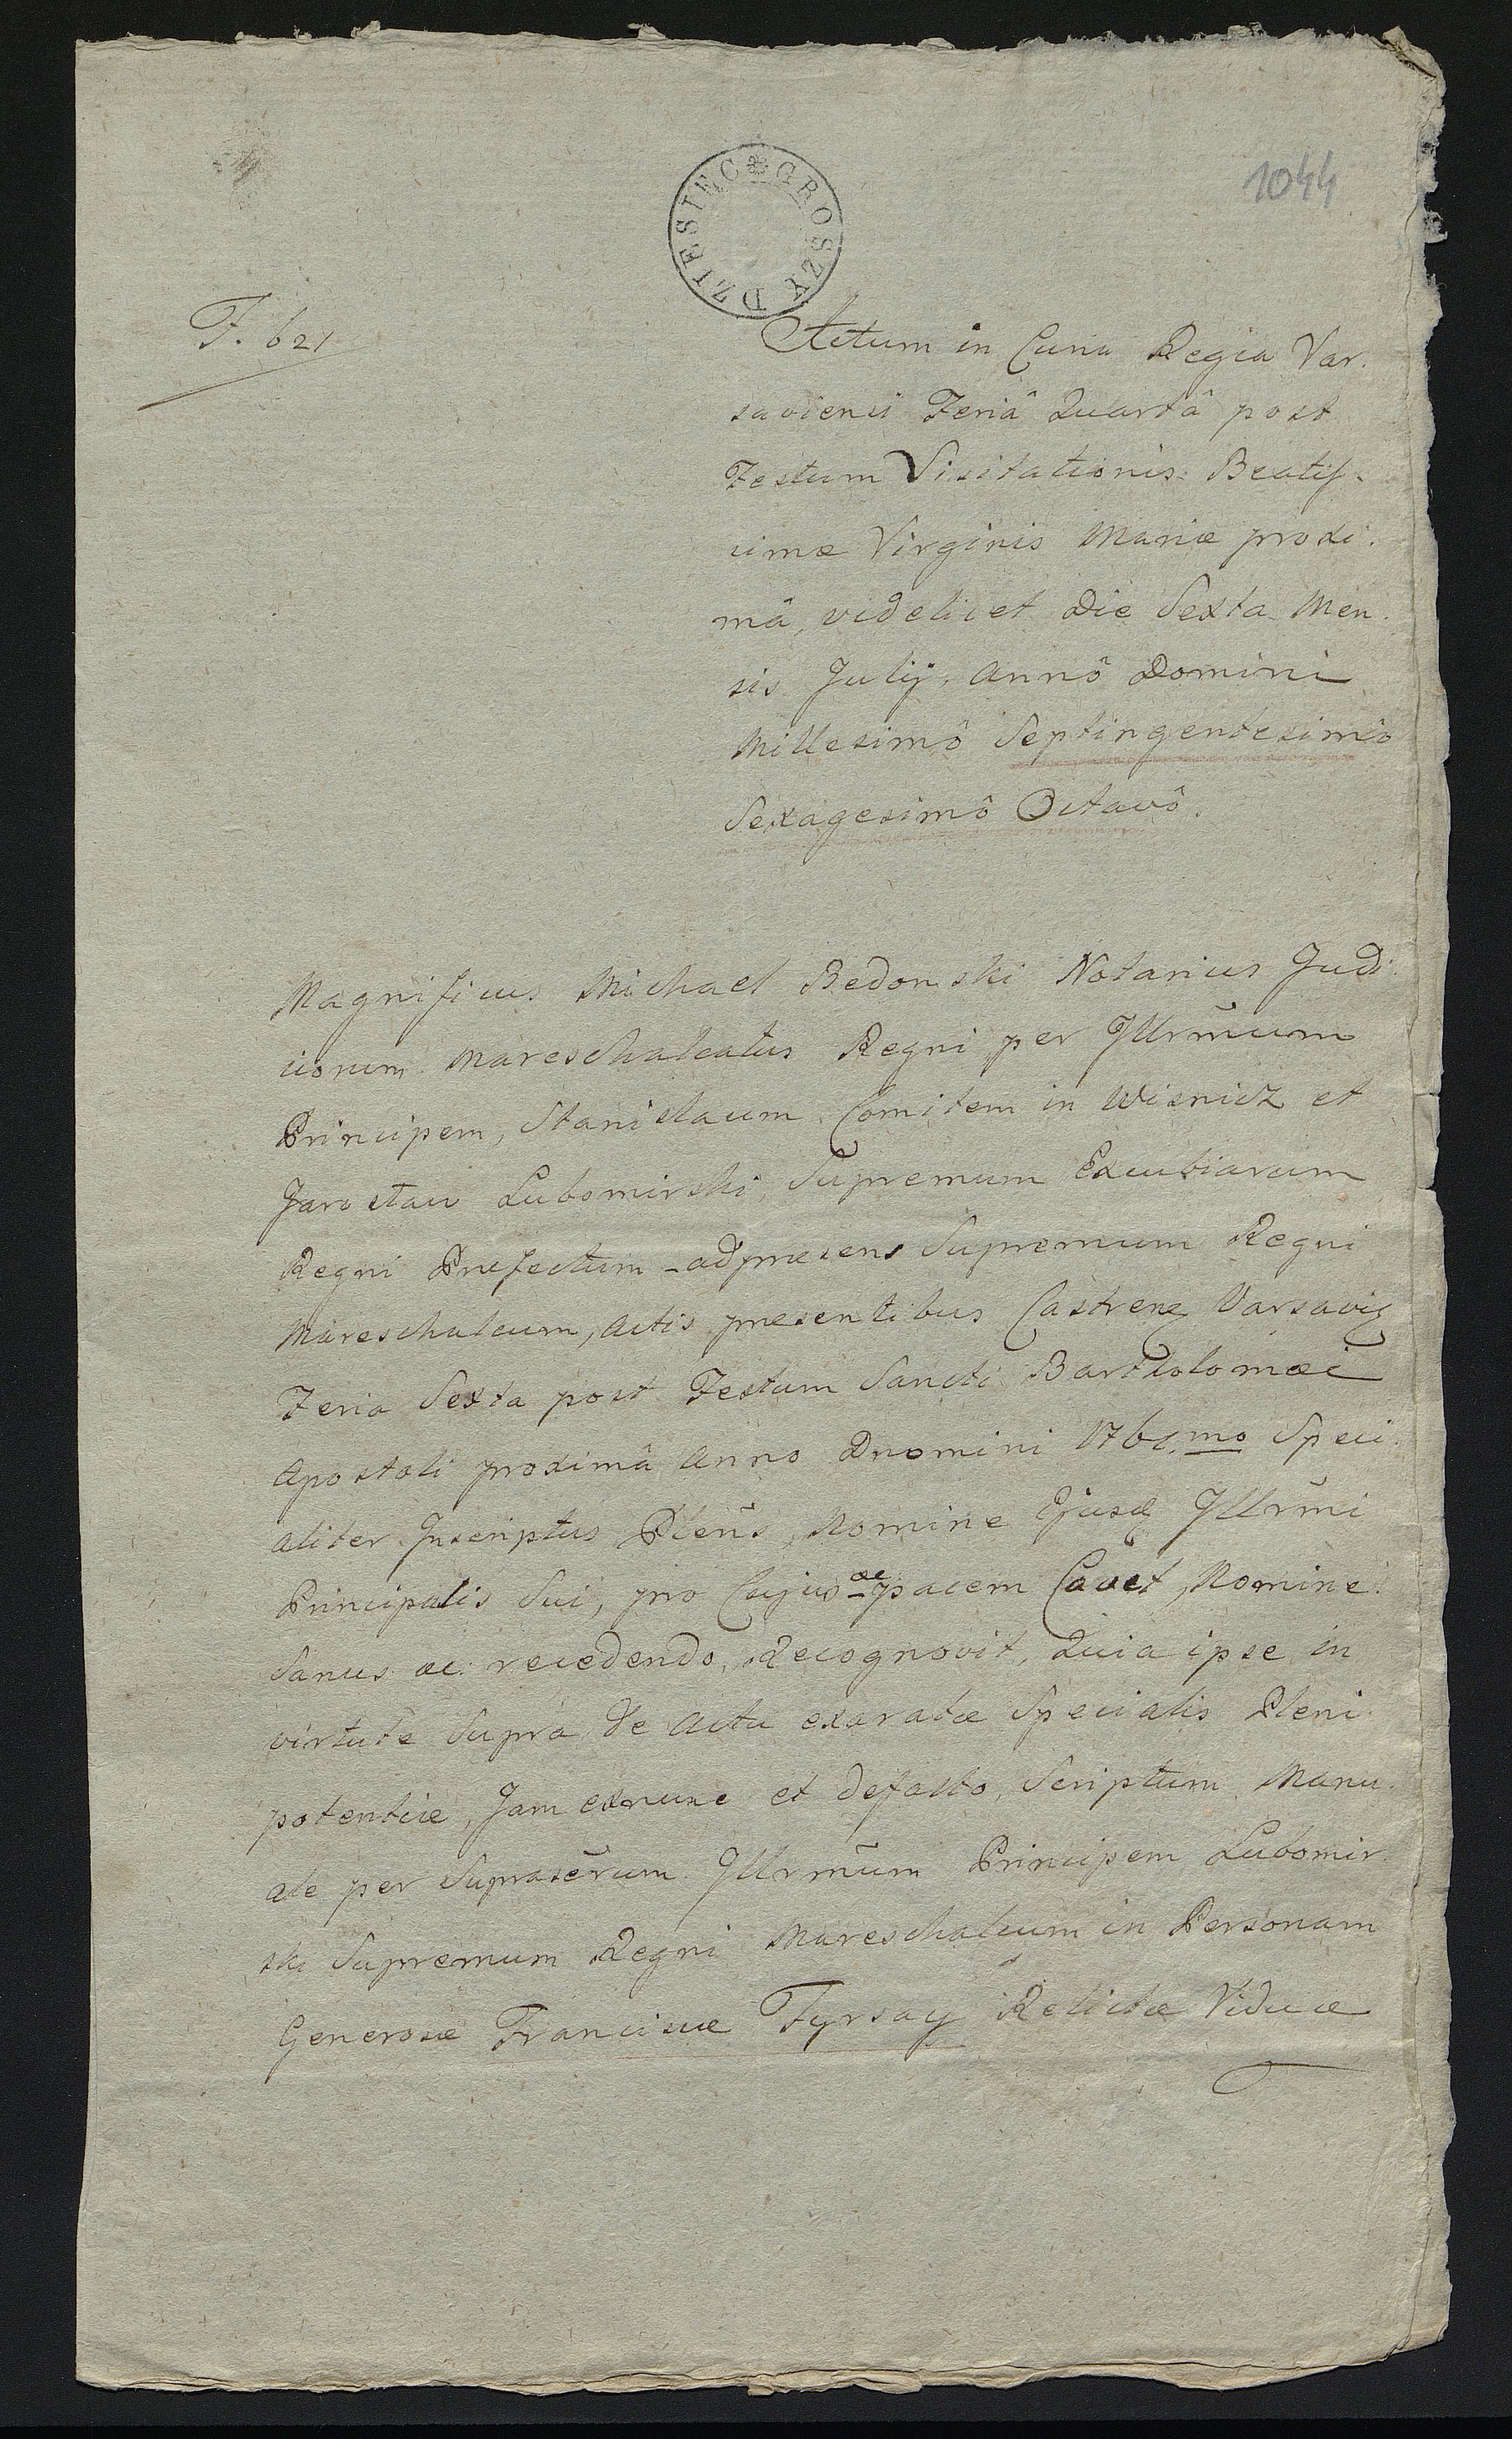 1044
DZIESIĘC GROSZY
F. 621
Actum in Curia Regia Var.
saviensi Feriâ Quartâ post
Festum Visitationis Beatis.
simæ Virginis Mariæ proxi.
mâ, videlicet die Sexta Men.
sis Julij, Annô Domini
Millesimô Septingentesimô
Sexagesimô Octavô.
Magnificus Michael Bedonski Notarius Judi.
ciorum Mareschalcatus Regni per Jllrm̃um
Principem, Stanislaum Comitem in Wisnicz et
Jaroslaw Lubomirski Supremum Excubiarum
Regni Præfectum adpræsens Supremum Regni
Mareschalcum, Actis præsentibus Castren Varsavien
Feria Sexta post Festum Sancti Bartholomæi
Apostoli proximâ Anno Dnomini mo Speci.
aliter Jnscriptus Pleñs, Nomine Ejusd Jllrm̃i
Principalis Sui, pro Cujus ac pacem Cavet, Nomine
Sanus ac recedendo, Recognovit, Quia ipse in
virtute Supra de Actu exaratæ Specialis Pleni
potentiæ, Jam exnunc et defacto, Scriptum Manu.
ale per Suprascr̃um Jllrm̃um Principem Lubomir.
ski Supremum Regni Mareschalcum in Personam
Generosæ Franciscæ Tyrsay Relictæ Viduæ